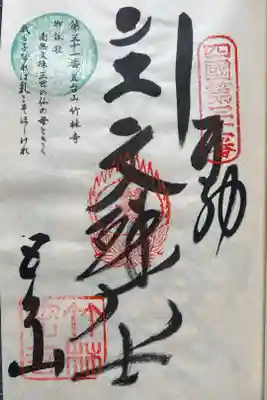 四國第三十一番
文殊大士
五台山
第三十一番五台山竹林寺
御詠歌
南無文殊三世の仏の母ときく
我も子なれば乳こそほしけれ